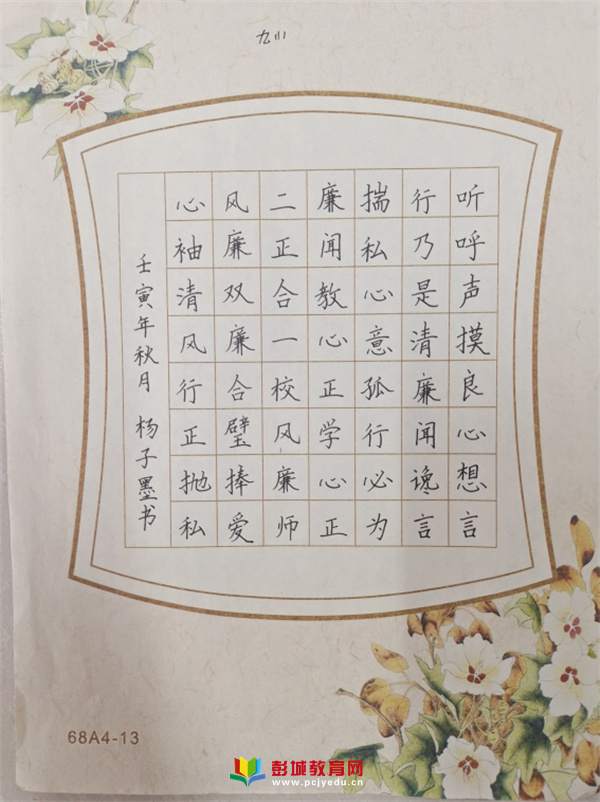 九(1)
听呼声摸良心想言
行乃是清廉闻谗言
揣私心意孤行必为
廉闻教心正学心正
二正合一校风廉师
风廉双廉合璧捧爱
心袖清风行正抛私
壬寅年秋月 杨子墨书
68A4-13
彭城教育网
www.pcjyedu.cn